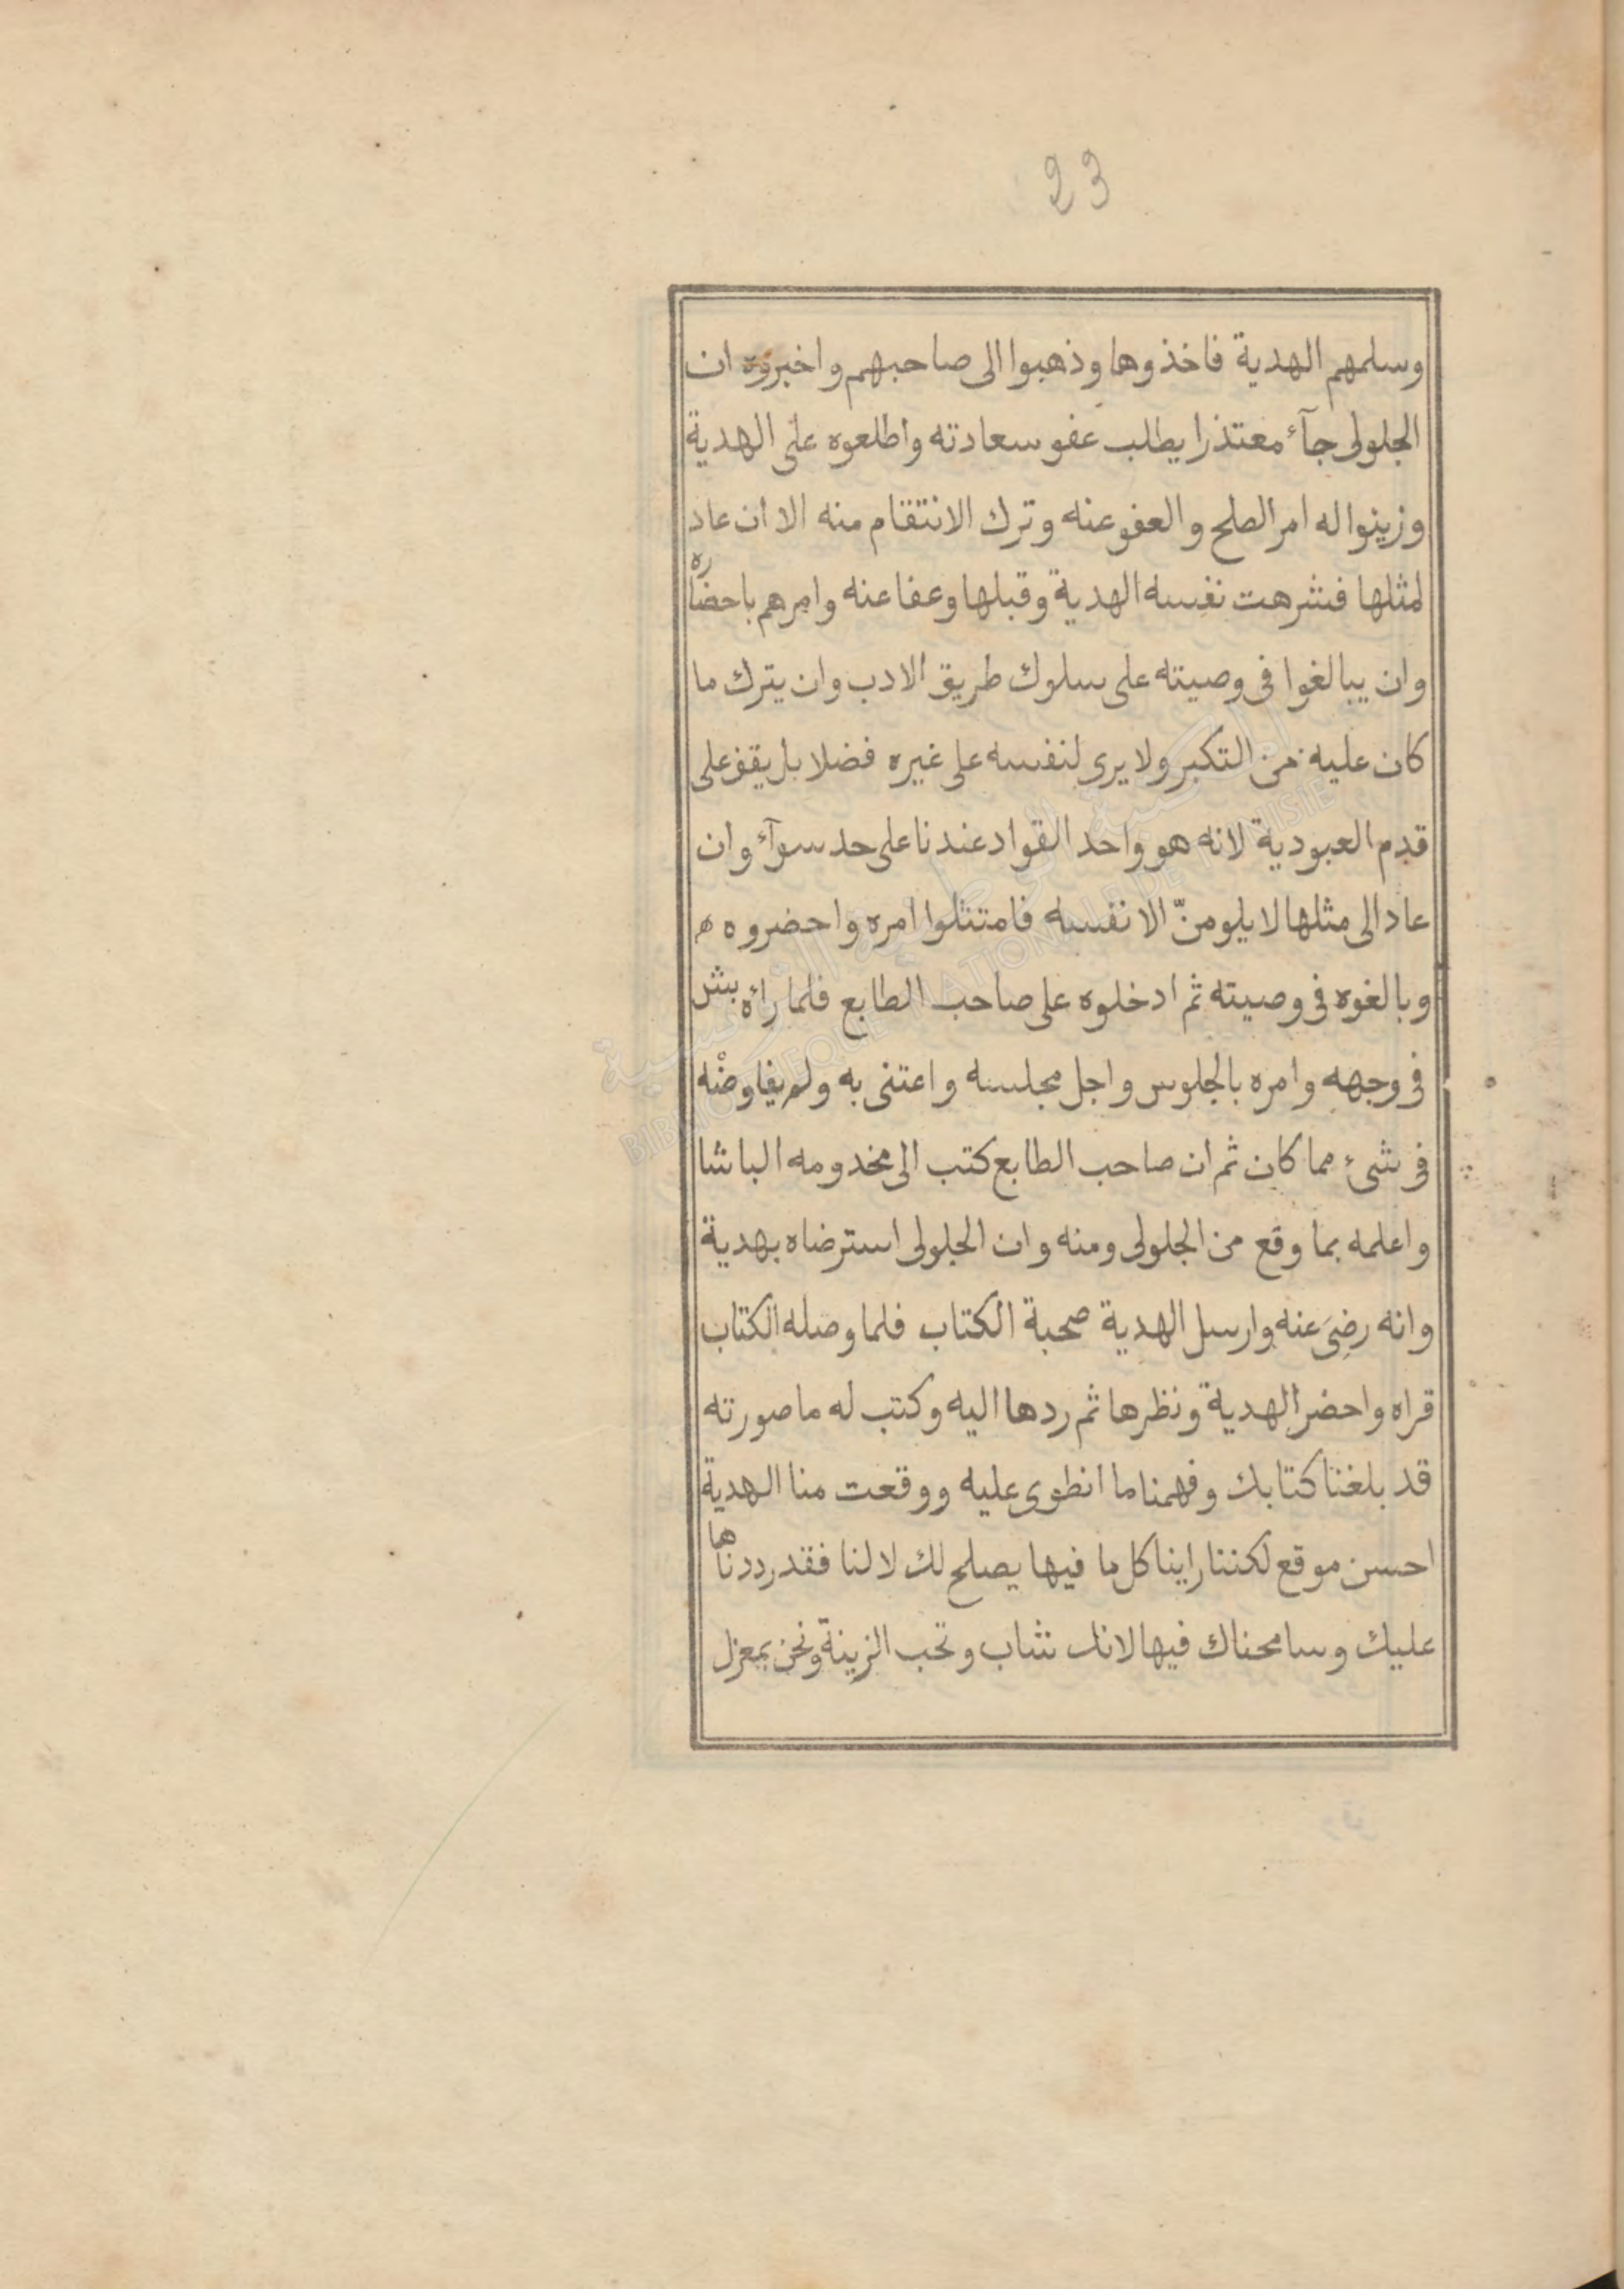 23
وسلمهم الهدية فاخذوها وذهبوا الى صاحبهم واخبروه ان
الجلولى جآء معتذرا يطلب عفو سعادته واطلعوه على الهدية
وزينوا له امر الصلح والعفو عنه وترك الانتقام منه الا ان عاد
لمثلها فشرهت نفسه الهدية وقبلها وعفا عنه وامرهم باحضاره
وان يبالغوا فى وصيته على سلوك طريق الادب وان يترك ما
كان عليه من التكبر ولا يرى لنفسه على غيره فضلا بل يقف على
قدم العبودية لانه هو واحد القواد عندنا على حد سوآء وان
عاد الى مثلها لا يلومنّ الا نفسه فامتثلوا امره واحضروه
وبالغوه فى وصيته ثم ادخلوه على صاحب الطابع فلما رائه بش
فى وجهه وامره بالجلوس واجل مجلسه واعتنى به ولم يفاوضْه
فى شىء مما كان ثم ان صاحب الطابع كتب الى مخدومه الباشا
واعلمه بما وقع من الجلولى ومنه وان الجلولى استرضاه بهدية
وانه رضىَ عنه وارسل الهدية صحبة الكتاب فلما وصله الكتاب
قراه واحضر الهدية ونظرها ثم ردها اليه وكتب له ما صورته
قد بلغنا كتابك وفهمنا ما انطوى عليه ووقعت منا الهدية
احسن موقع لكننا راينا كل ما فيها يصلح لك لا لنا فقد رددناها
عليك وسامحناك فيها لانك شاب وتحب الزينة ونحن بمعزل
المكتبة الوطنية التونسية
BIBLIOTHEQUE NATIONALE DE TUNISIE